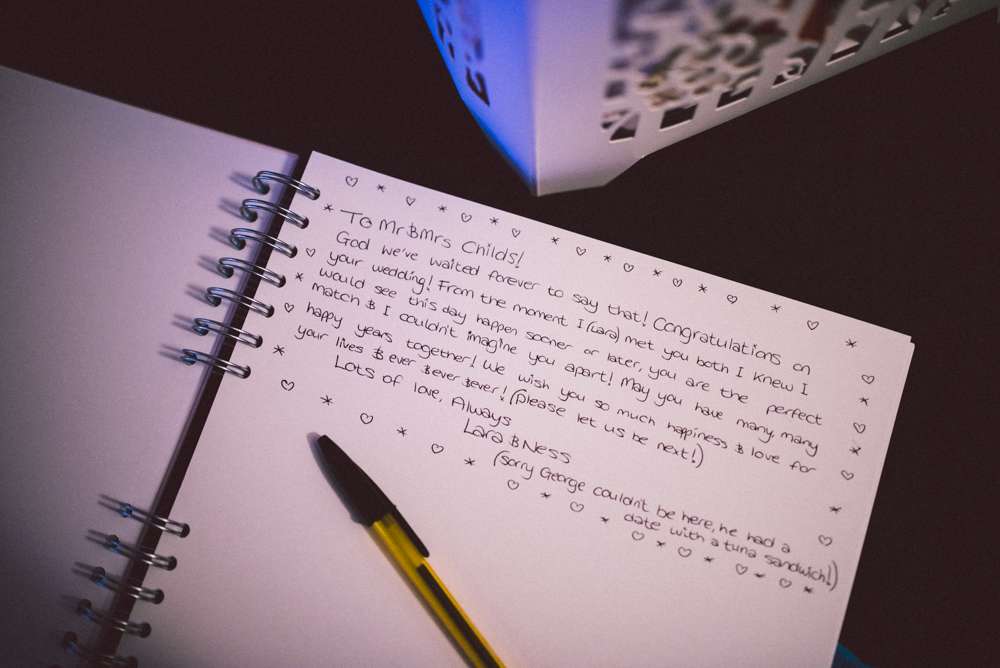 To Mr & Mrs Childs!
God we've waited forever to say that! Congratulations on
your wedding! From the moment I (Lara) met you both I knew I
would see this day happen sooner or later, you are the perfect
match & I couldn't imagine you apart! May you have many, many
happy years together! We wish you so much happiness & love for
your lives & ever & ever & ever! (please let us be next!)
Lots of love, Always
Lara & Ness
(sorry George couldn't be here, he had a
date with a tuna sandwich!)